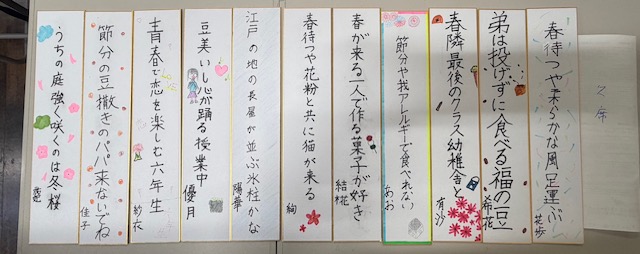 春待つや柔らかな風足運ぶ
花歩
弟は投げずに食べる福の豆
希花
春隣最後のクラス幼稚舎と
有沙
節分や我アレルギーで食べれない
あお
春が来る一人で作る菓子が好き
結椛
春待つや花粉と共に猫が来る
絢
江戸の地の長屋が並ぶ氷柱かな
陽華
豆美いし心が踊る授業中
優月
青春で恋を楽しむ六年生
紗花
節分の豆撒きのパパ来ないでね
佳子
うちの庭強く咲くのは冬桜